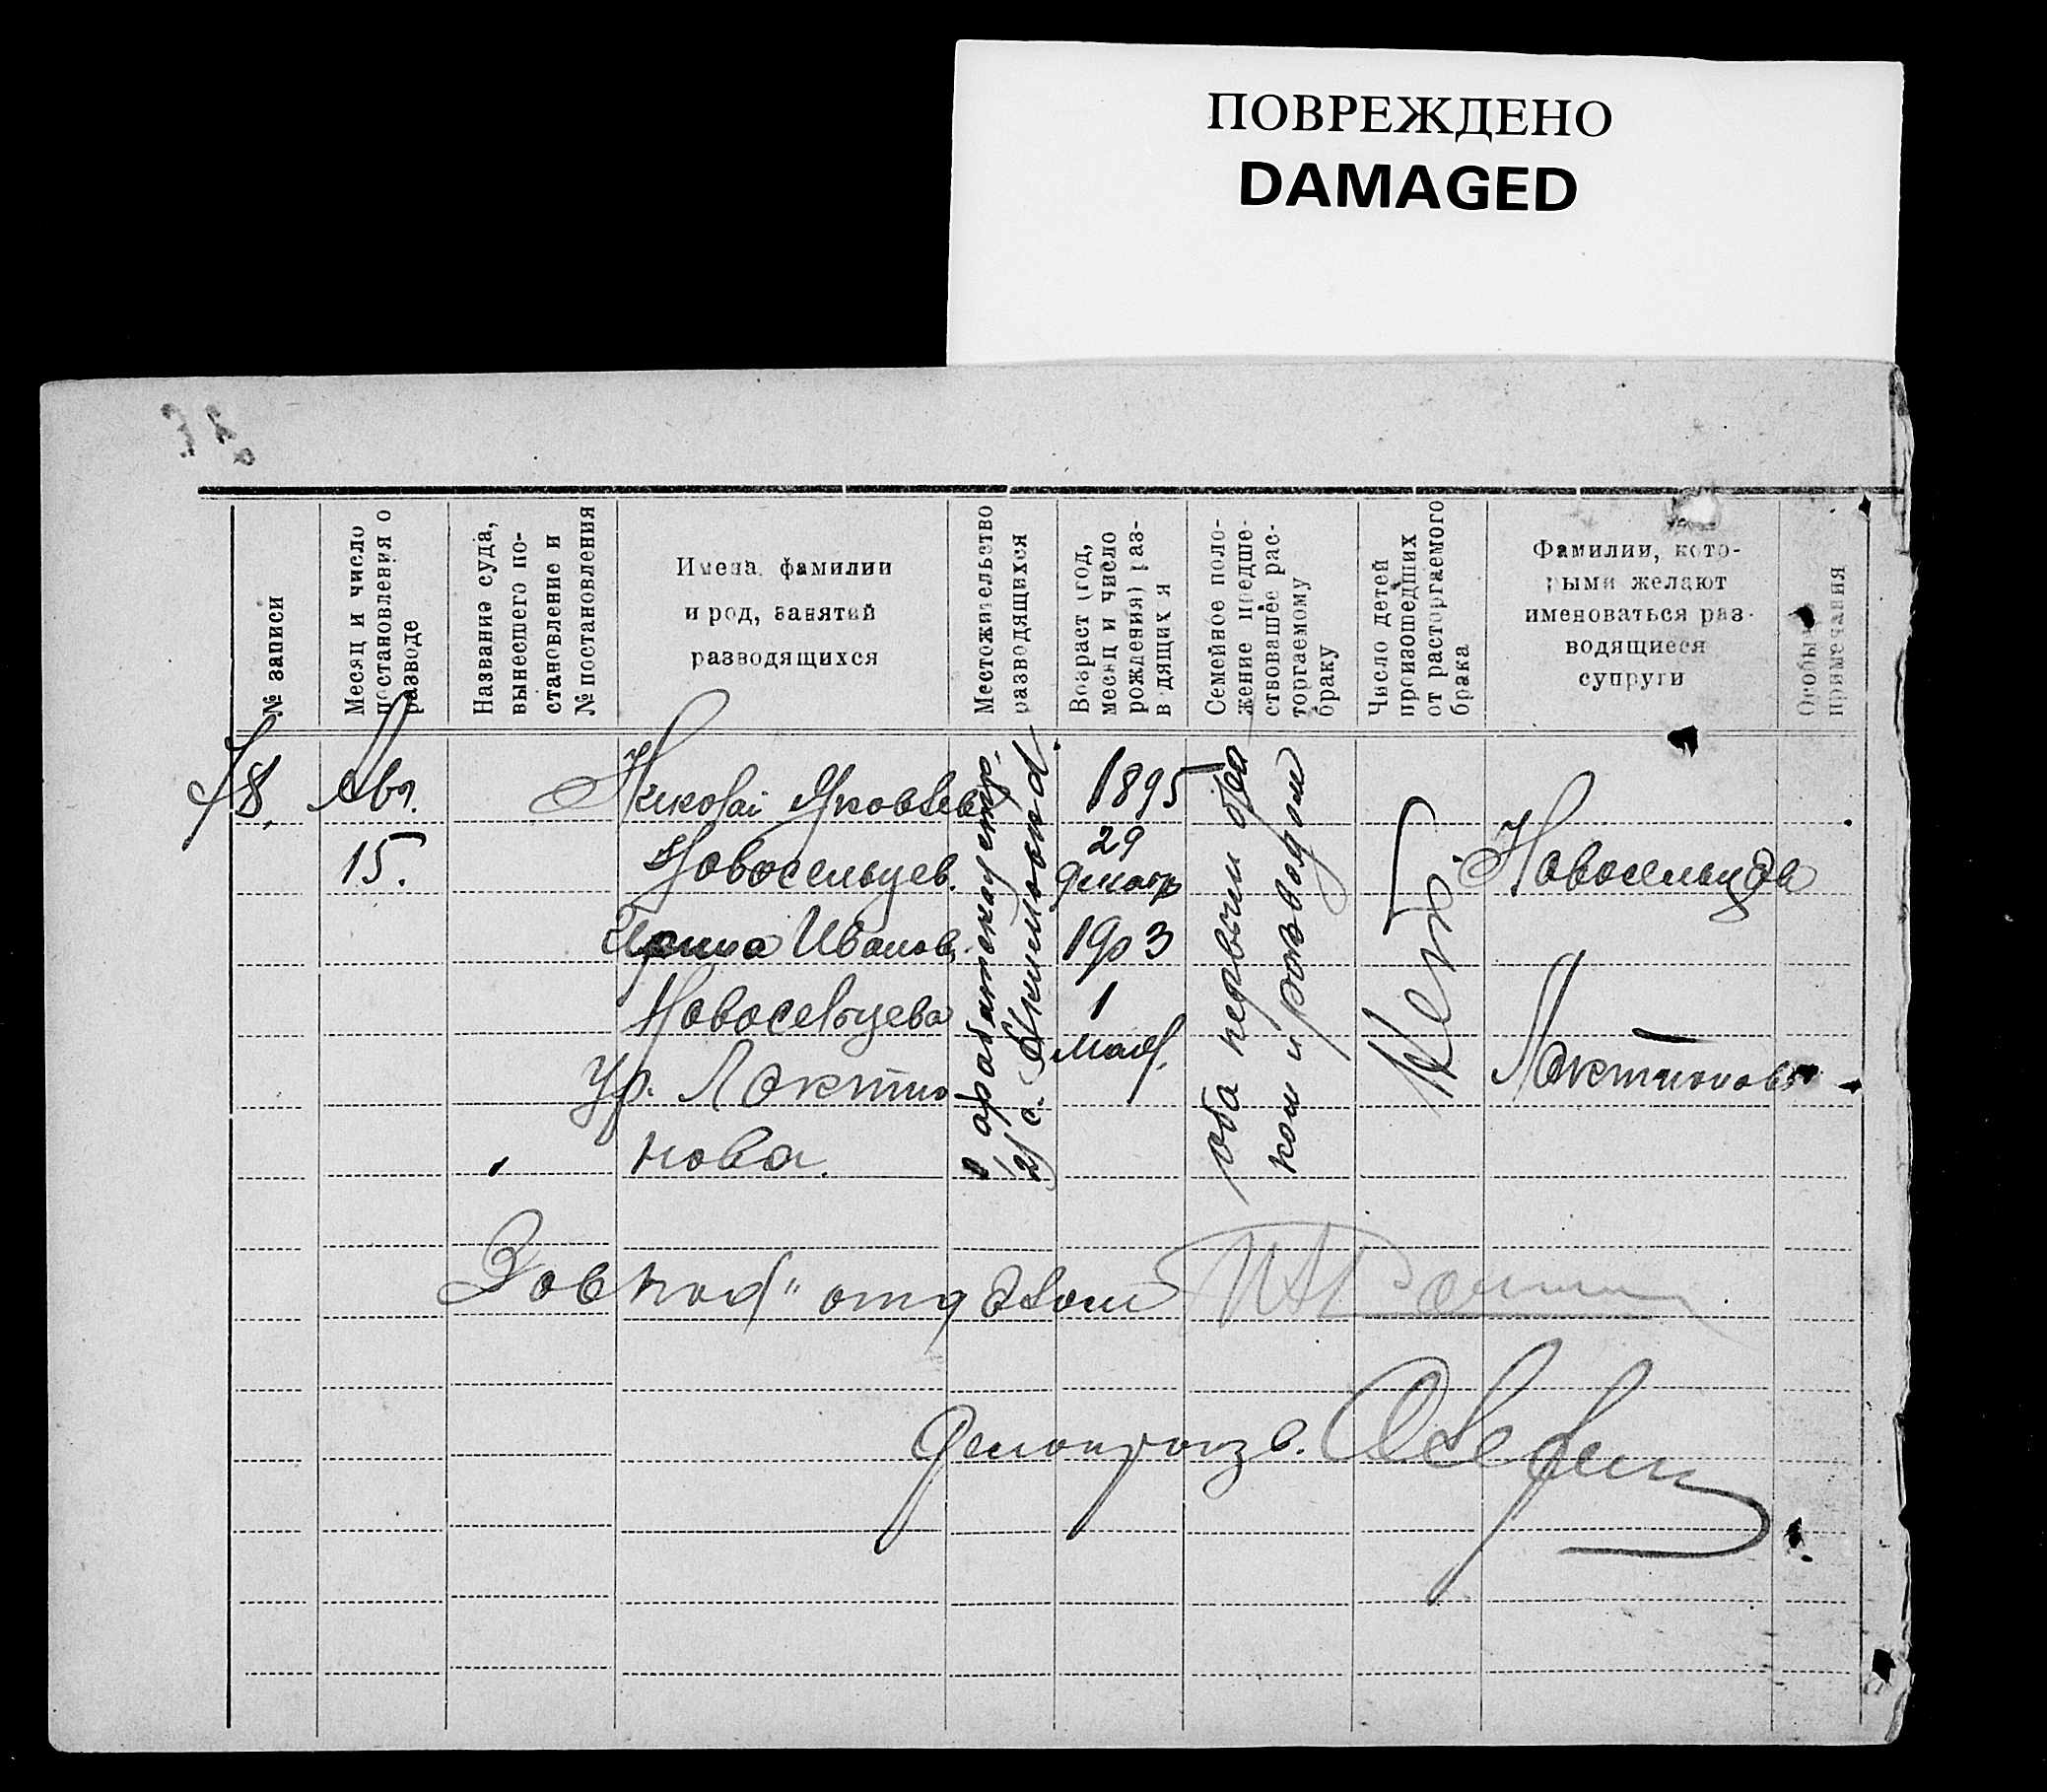 ПОВРЕЖДЕНО
DAMAGED
№ записи
Месяц и число
постановления о
разводе
Название суда,
вынесшего по-
становление и
№ постановления
Имена, фамилии
и род, занятий
разводящихся
Местожительство
разводящихся
Возраст (год,
месяц и число
рождения) раз-
водящихся
Семейное поло-
жение предше-
ствовавшее рас-
торгаемому
браку
Число детей
происшедших
от расторгаемого
брака
Фамилии, кото-
рыми желают
именоваться раз-
водящиеся
супруги
Особые
примечания
Авг.
15.
Николай Яковлев
Новосельцев.
Ирина Иванов.
Новосельцева
Ур. Лактио
нова.
1895
29
декабр
1903
1
мая
оба первым бра
ком и разводом
Нет.
Новосельцев
Лактионова
Делопроизв.